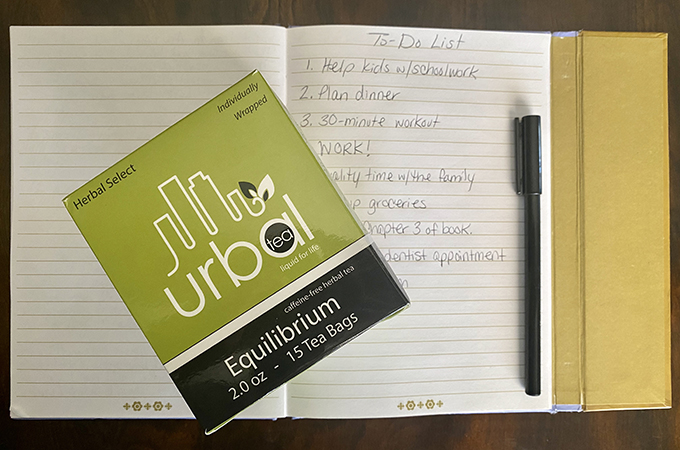 Individually
Wrapped
Herbal Select
urbal
tea
liquid for life
caffeine-free herbal tea
Equilibrium
2.0 oz - 15 Tea Bags
To-Do List
1. Help kids w/schoolwork
2. Plan dinner
3. 30-minute workout
WORK!
time w/the family
groceries
Chapter 3 of book.
dentist appointment